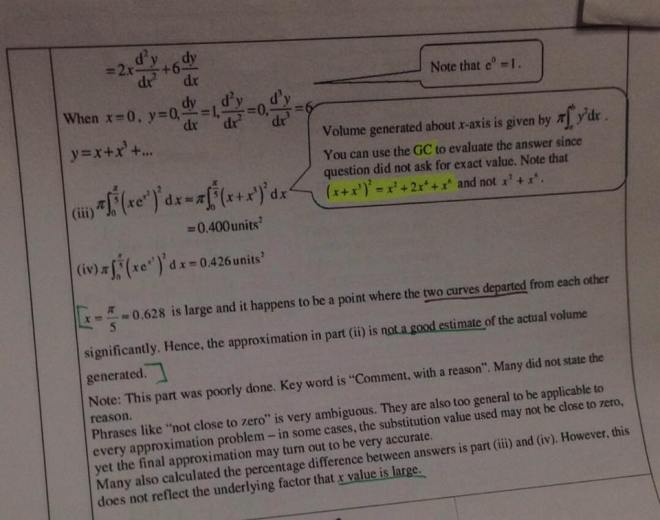 = 2x d²y/dx² + 6 dy/dx
Note that e⁰ = 1.
When x = 0, y = 0, dy/dx = 1, d²y/dx² = 0, d³y/dx³ = 6
y = x + x³ + ...
Volume generated about x-axis is given by π∫ₐᵇ y²dx .
You can use the GC to evaluate the answer since
question did not ask for exact value. Note that
(x + x³)² = x² + 2x⁴ + x⁶ and not x² + x⁶.
(iii) π∫₀^(π/5) (xe^(x²))² dx ≈ π∫₀^(π/5) (x + x³)² dx
= 0.400units²
(iv) π∫₀^(π/5) (xe^(x²))² dx = 0.426units²
x = π/5 = 0.628 is large and it happens to be a point where the two curves departed from each other
significantly. Hence, the approximation in part (ii) is not a good estimate of the actual volume
generated.
Note: This part was poorly done. Key word is “Comment, with a reason”. Many did not state the
reason.
Phrases like “not close to zero” is very ambiguous. They are also too general to be applicable to
every approximation problem – in some cases, the substitution value used may not be close to zero,
yet the final approximation may turn out to be very accurate.
Many also calculated the percentage difference between answers is part (iii) and (iv). However, this
does not reflect the underlying factor that x value is large.